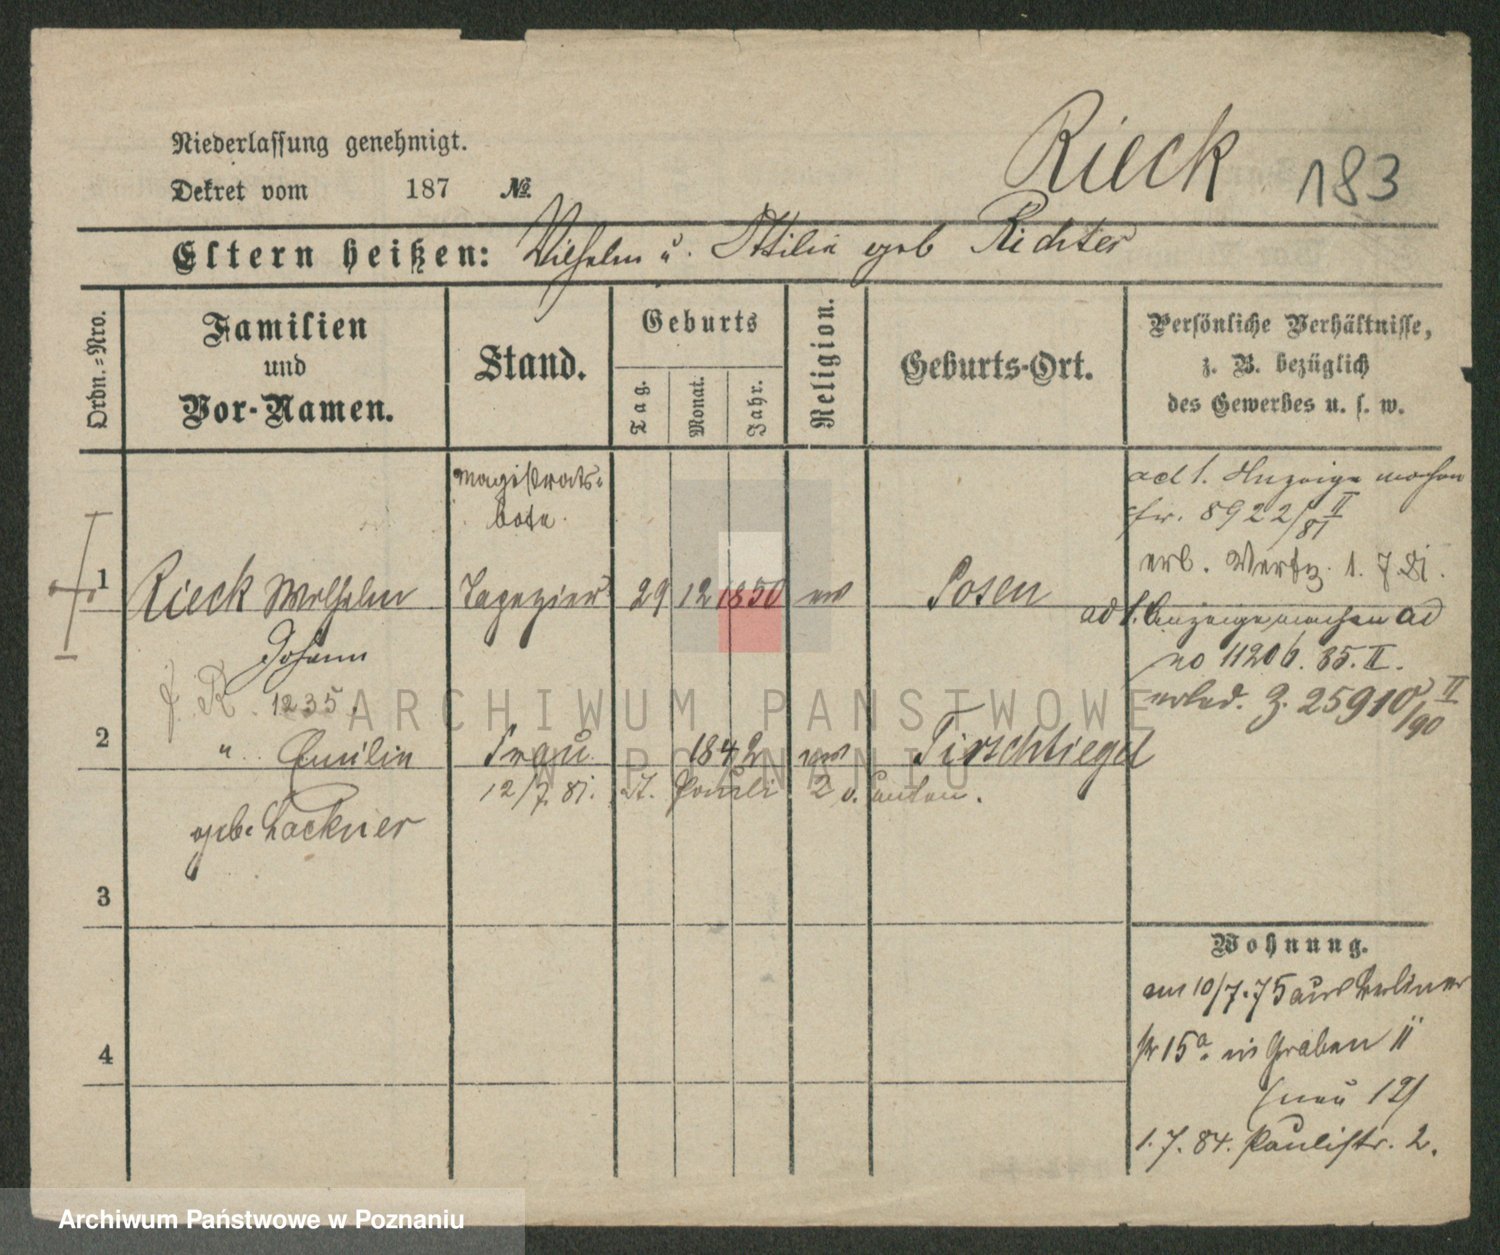 Niederlassung genehmigt.
Dekret vom 187 №
Rieck 183
Eltern heißen: Wilhelm u. Ottilie geb Richter
Ordn.=Nro.
Familien
und
Vor-Namen.
Stand.
Geburts
Tag.
Monat.
Jahr.
Religion.
Geburts-Ort.
Persönliche Verhältnisse,
z. B. bezüglich
des Gewerbes u. s. w.
Magistrats-
bote.
ad 1. Anzeige machen
8922/81 II
1 Rieck Wilhelm Tapezier 29 12 1850 ev Posen
Johann
ad 1. Anzeige machen ad
no 11206. 85. II.
J. R. 1235.
erled. Z. 25910/90 II
2 " Emilie Frau 1842 ev Tirschtiegel
12/7. 81. St. Pauli 2 v. unten.
geb. Lackner
3
4
Wohnung.
am 10/7.75 aus Berliner
str 15a. in Graben 11
(neu 12)
1.7.84. Paulistr. 2.
ARCHIWUM PAŃSTWOWE
W POZNANIU
Archiwum Państwowe w Poznaniu